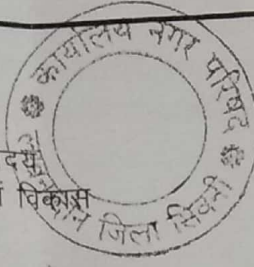 कार्यालय नगर परिषद
जिला सिवनी
दय
विकास